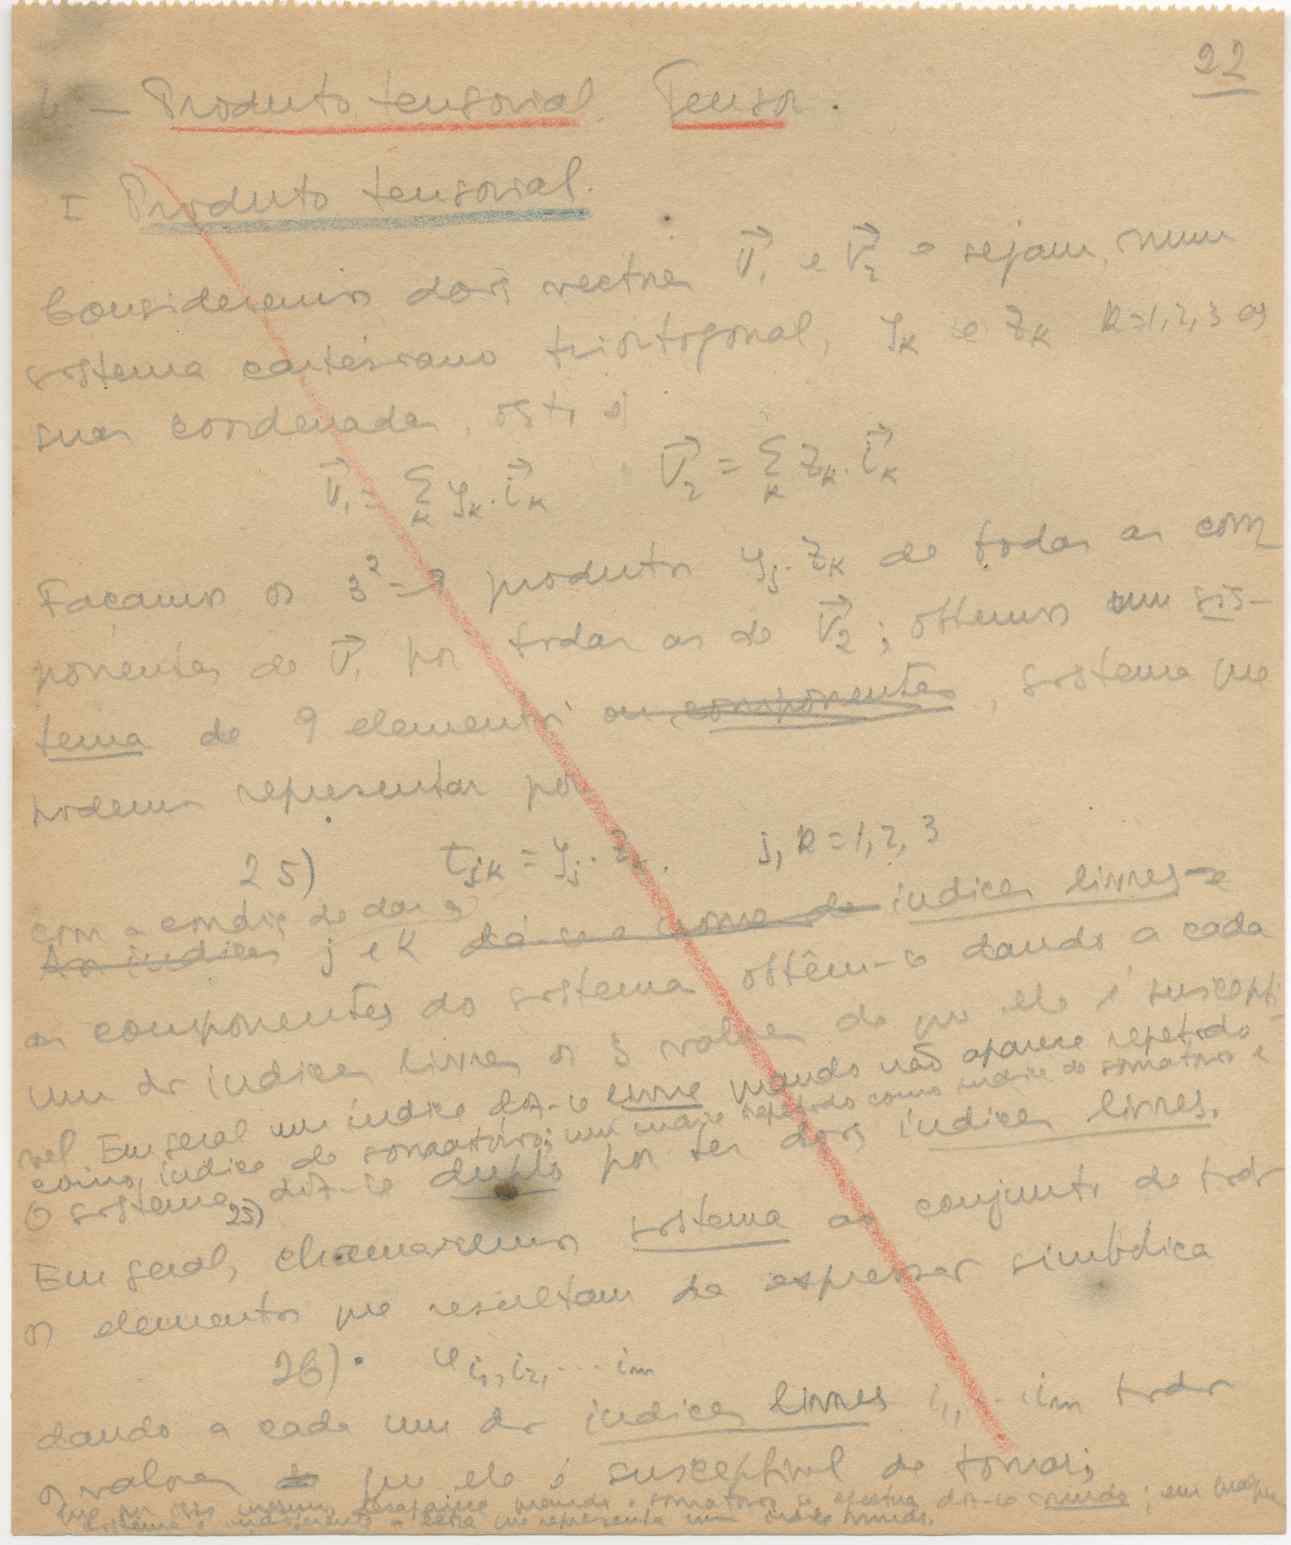 22
4 — Produto tensorial. Tensor.
I Produto tensorial.
Consideremos dois vectores V⃗₁ e V⃗₂ e sejam, num
sistema cartesiano triortogonal, yₖ e zₖ k=1,2,3 as
suas coordenadas, isto é
V⃗₁ = Σₖ yₖ.i⃗ₖ V⃗₂ = Σₖ zₖ.i⃗ₖ
Façamos os 3²=9 produtos yⱼ.zₖ de todas as com
ponentes de V⃗₁ por todas as de V⃗₂; obtemos um sis-
tema de 9 elementos ou componentes, sistema que
podemos representar por
25) tⱼₖ = yⱼ.zₖ. j, k=1,2,3
com a condiç. de dar a
Aos indices j e k dá-se o nome de indices livres e
as componentes do sistema obtêm-se dando a cada
um dos indices livres os 3 valores de que ele é suscepti-
vel Em geral um índice diz-se livre quando não aparece repetido
como índice de somatório; um indice repetido como indice de somatório e
O sistema 25) diz-se duplo por ter dois indices livres.
Em geral, chamaremos sistema ao conjunto de todos
os elementos que resultam da expressar simbólica
26). φ i₁, i₂, ... iₘ
dando a cada um dos indices livres i₁, ... iₘ todos
os valores de que ele é susceptivel de tomar;
que por isso mesmo, desaparece quando o somatório se efectua diz-se mudo; em qualquer
sistema é indiferente a letra que representa um indice mudo.